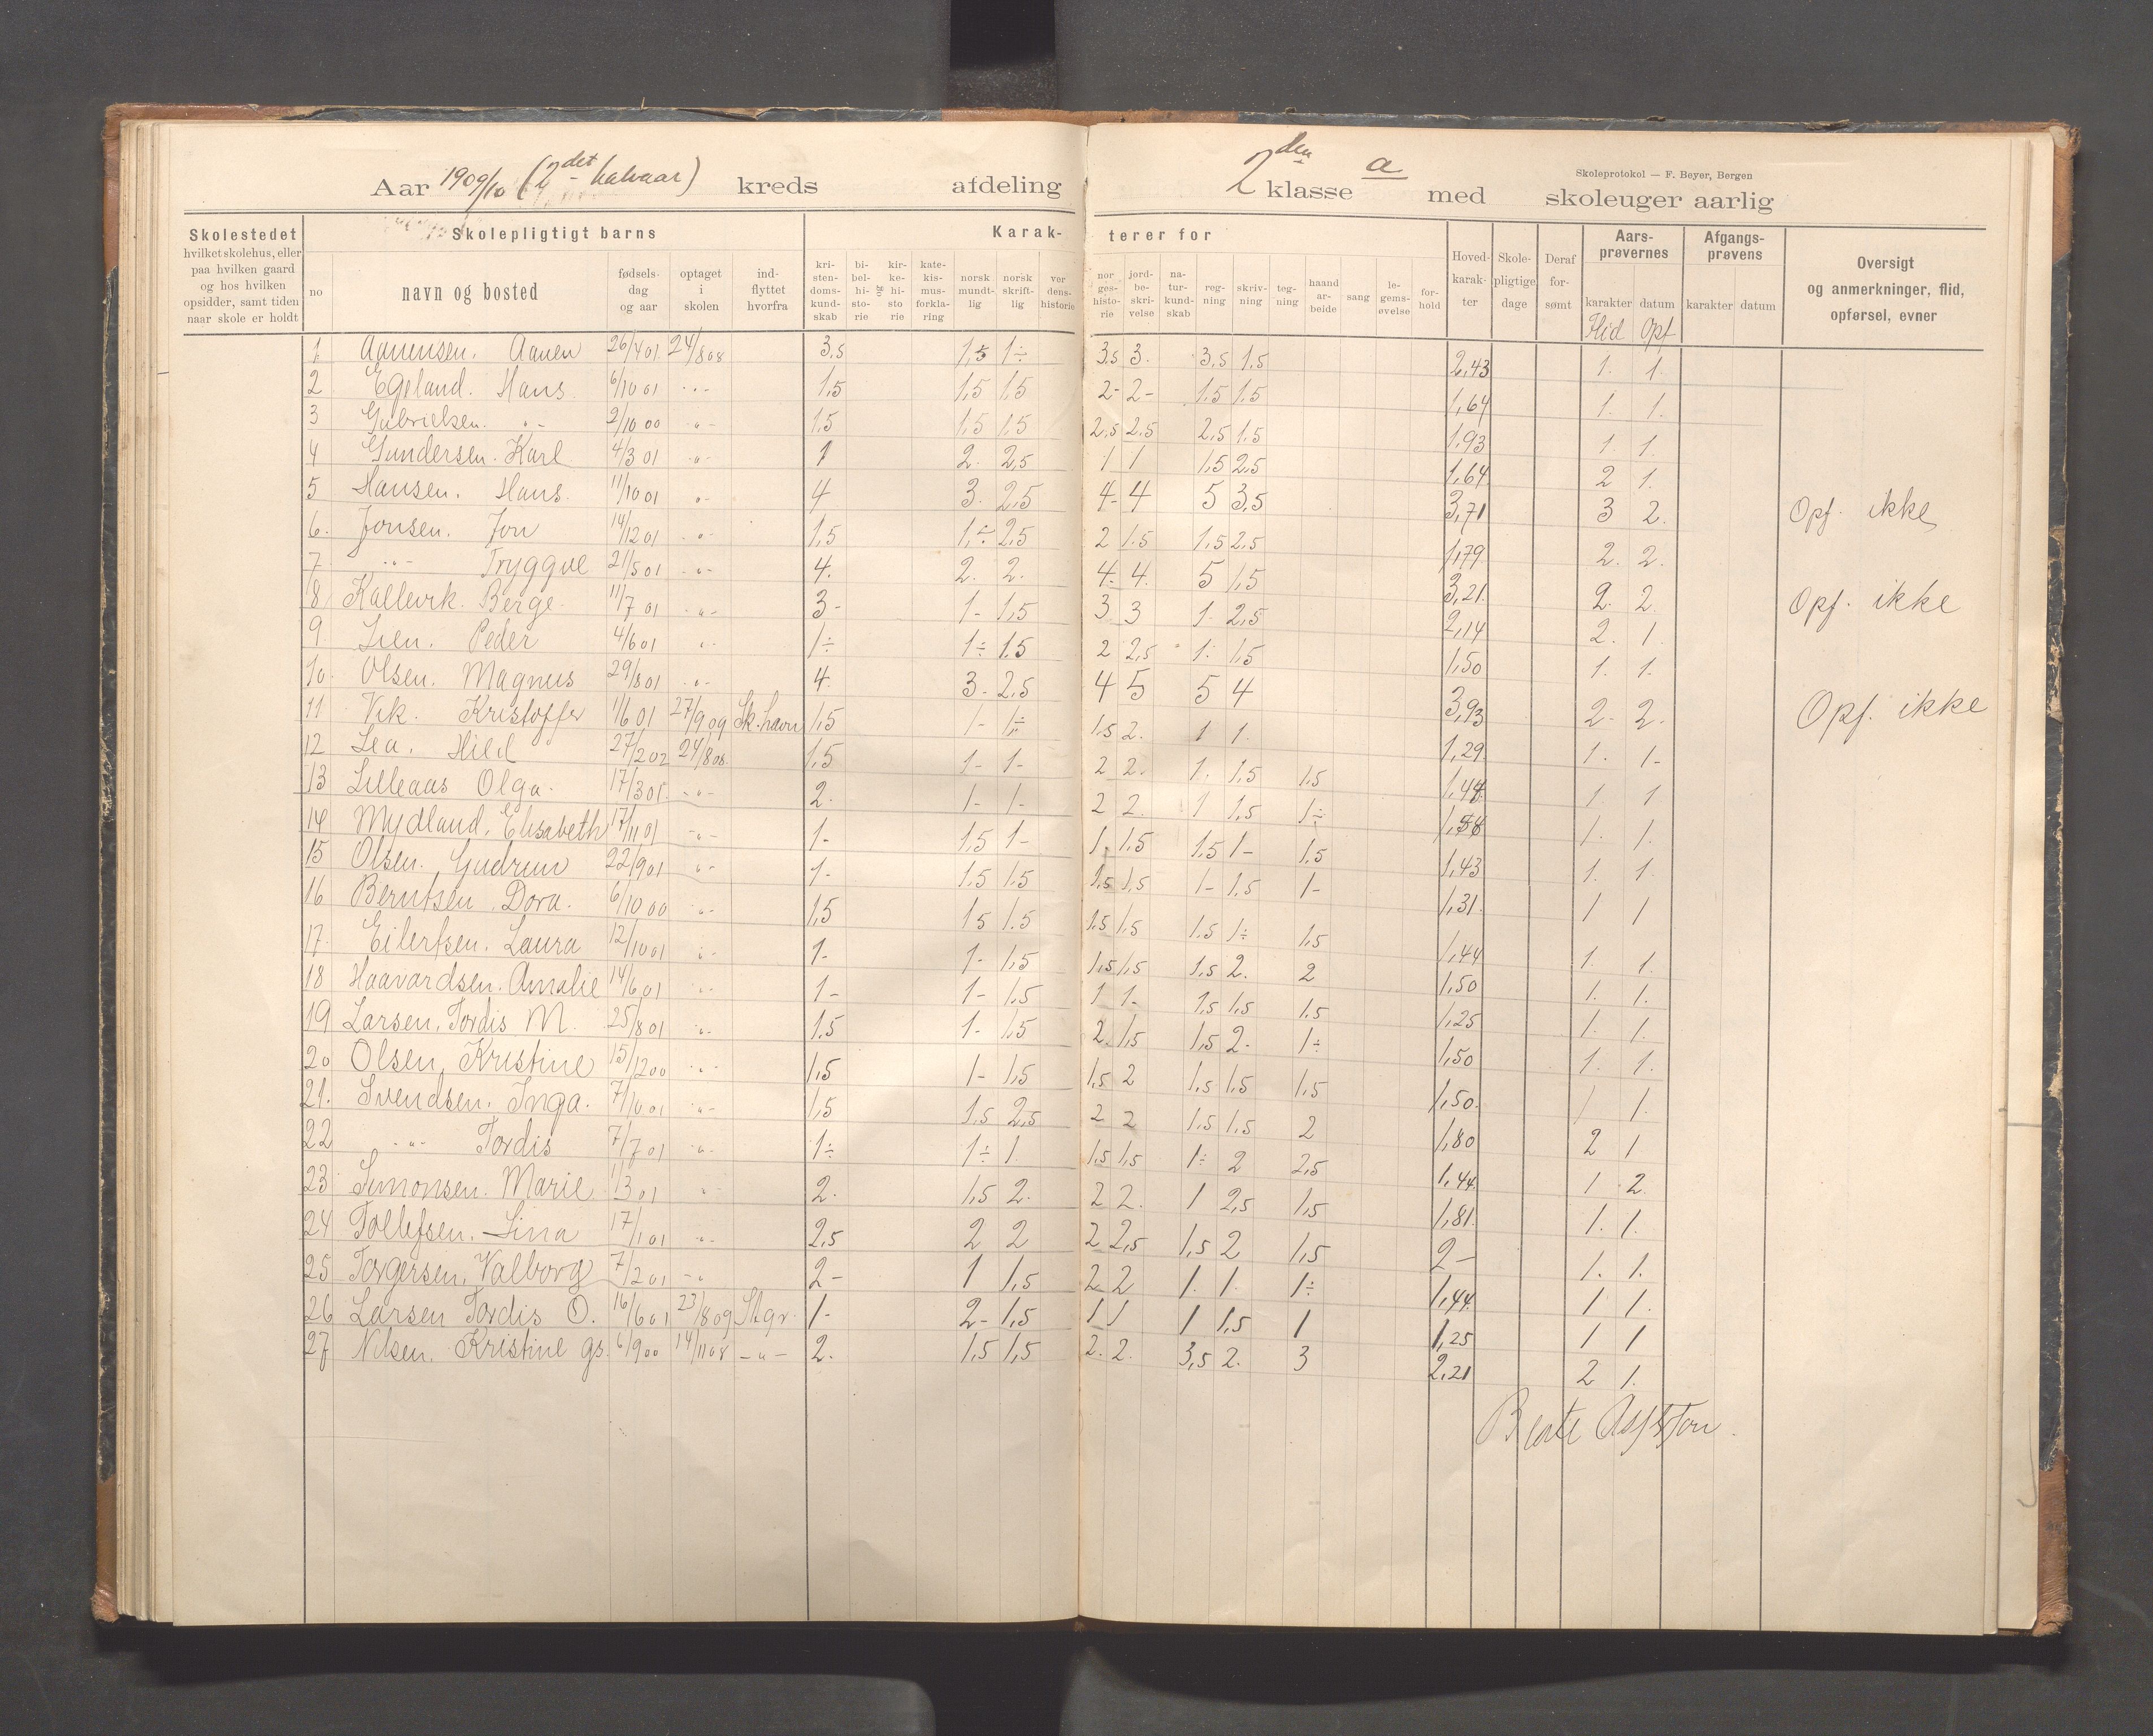 Aar 1909/10 (2det halvaar) kreds afdeling 2den klasse a med skoleuger aarlig
Skoleprotokol — F. Beyer, Bergen
Skolestedet hvilket skolehus, eller paa hvilken gaard og hos hvilken opsidder, samt tiden naar skole er holdt
Skolepligtigt barns
no navn og bosted fødselsdag og aar optaget i skolen indflyttet hvorfra
Karakterer for
kristendomskundskab bibelhistorie og kirkehistorie katekismusforklaring norsk mundtlig norsk skriftlig verdenshistorie norgeshistorie jordbeskrivelse naturkundskab regning skrivning tegning haandarbeide sang legemsøvelse forhold
Hovedkarakter Skolepligtige dage Deraf forsømt
Aarsprøvernes karakter datum
Afgangsprøvens karakter datum
Oversigt og anmerkninger, flid, opførsel, evner
Flid Opf
1 Aanensen. Aanen 26/4 01. 24/8 08 3,5 1,5 1÷ 3,5 3. 3,5 1,5 2,43 1. 1.
2 Egeland. Hans 6/10 01 -"- 1,5 1,5 1,5 2- 2- 1,5 1,5 1,64 1. 1.
3 Gabrielsen. -"- 2/10 00 -"- 1,5 1,5 1,5 2,5 2,5 2,5 1,5 1,93 1. 1.
4 Gundersen. Karl 4/3 01 -"- 1 2. 2,5 1 1 1,5 2,5 1,64 2 1.
5 Hansen. Hans. 11/10 01 -"- 4 3. 2,5 4- 4 5 3,5 3,71 3 2. Opf. ikke
6. Jonsen. Jon 14/12 01 -"- 1,5 1÷ 2,5 2 1.5 1.5 2,5 1,79 2. 2.
7 -"- Tryggve 21/5 01 -"- 4. 2. 2. 4. 4. 5 1,5 3,21. 2. 2. Opf. ikke
8 Kallevik. Berge 11/7 01 -"- 3- 1- 1,5 3 3 1. 2,5 2,14 2. 1.
9. Lien. Peder 4/6 01 -"- 1÷ 1÷ 1.5 2 2,5 1. 1,5 1,50 1. 1.
10. Olsen. Magnus 29/8 01 -"- 4. 3. 2.5 4 5 5 4 3,93 2. 2. Opf. ikke
11 Vik. Kristoffer 1/6 01 27/9 09 Sk.havn 1,5 1- 1÷ 1.5 2. 1 1. 1,29. 1. 1-
12 Lea. Hild 27/2 02 24/8 08. 1,5 1- 1- 2 2. 1. 1,5 1,5 1 1
13 Lilleaas Olga. 17/3 01. -"- 2. 1- 1- 2 2. 1 1,5 1÷ 1. 1.
14 Mydland. Elisabeth 17/11 01 -"- 1- 1,5 1- 1. 1.5 1.5 1- 1,5 1,43 1. 1.
15 Olsen. Gudrun 22/9 01 -"- 1- 1.5 1.5 1,5 1,5 1- 1,5 1- 1,31. 1 1
16 Berntsen. Dora. 6/10 00 -"- 1,5 1 5 1.5 1.5 1,5 1.5 1÷ 1,5 1,44 1. 1.
17. Eilertsen. Laura 12/10 01 -"- 1- 1- 1,5 1,5 1,5 1,5 2. 2 1,50 1. 1.
18 Haavardsen. Amalie 14/6 01 -"- 1- 1- 1.5 1 1- 1,5 1,5 1.5 1,25 1. 1.
19 Larsen. Tordis M. 25/8 01 -"- 1.5 1- 1,5 2. 1,5 1,5 2- 1÷ 1,50 1. 1.
20 Olsen. Kristine 15/12 00 -"- 1,5 1- 1,5 1,5 2 1,5 1,5 1,5 1,50. 1 1.
21. Svendsen. Inga. 7/10 01 -"- 1,5 1.5 2,5 2 2 1,5 1,5 2 1,80 2 1
22 -"- Tordis 7/7 01 -"- 1÷ 1÷ 1. 1,5 1,5 1÷ 2 2,5 1,44. 1 2.
23 Simonsen. Marie 1/3 01 -"- 2. 1,5 2. 2 2. 1 2,5 1,5 1,81. 1. 1.
24 Tollefsen. Lina 17/1 01 -"- 2,5 2 2 2 2,5 1,5 2 1,5 2- 1. 1.
25 Torgersen. Valborg 7/2 01 -"- 2- 1 1,5 2 2 1. 1. 1÷ 1,44. 1 1.
26 Larsen Tordis O. 16/6 01 23/8 09 1- 2- 1,5 1 1 1 1,5 1 1,25 1 1
27 Nilsen. Kristine gs. 6/9 00 14/11 08 -"- 2. 1,5 1,5 2. 2. 3,5 2. 3 2,21 2 1.
Beate